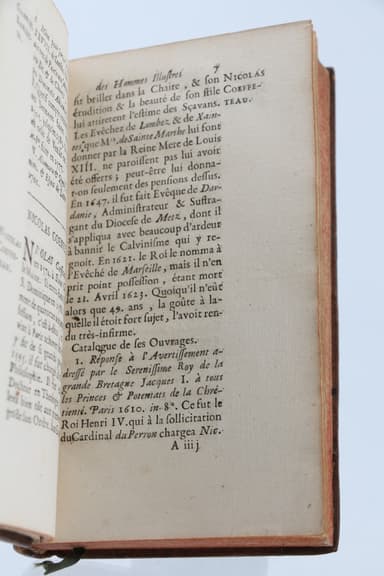 des Hommes Illustres 7
fit briller dans la Chaire, & son NICOLAS
érudition & la beauté de son stile COEFFE-
lui attirerent l'estime des Sçavans. TEAU.
Les Evêchez de Lombez & de Xain-
tes, que Mrs. de Sainte Marthe lui font
donner par la Reine Mere de Louis
XIII. ne paroissent pas lui avoir
été offerts; peut-être lui donna-
t-on seulement des pensions dessus.
En 1647. il fut fait Evêque de Dar-
danie, Administrateur & Suffra-
gant du Diocese de Metz, dont il
s'appliqua avec beaucoup d'ardeur
à bannir le Calvinisme qui y re-
gnoit. En 1621. le Roi le nomma à
l'Evêché de Marseille, mais il n'en
prit point possession, étant mort
le 21. Avril 1623. Quoiqu'il n'eût
alors que 49. ans, la goûte à la-
quelle il étoit fort sujet, l'avoit ren-
du très-infirme.
Catalogue de ses Ouvrages.
1. Réponse à l'Avertissement a-
dressé par le Serenissime Roy de la
grande Bretagne Jacques I. à tous
les Princes & Potentats de la Chré-
tienté. Paris 1610. in-8°. Ce fut le
Roi Henri IV. qui à la sollicitation
du Cardinal du Perron chargea Nic.
A iiij